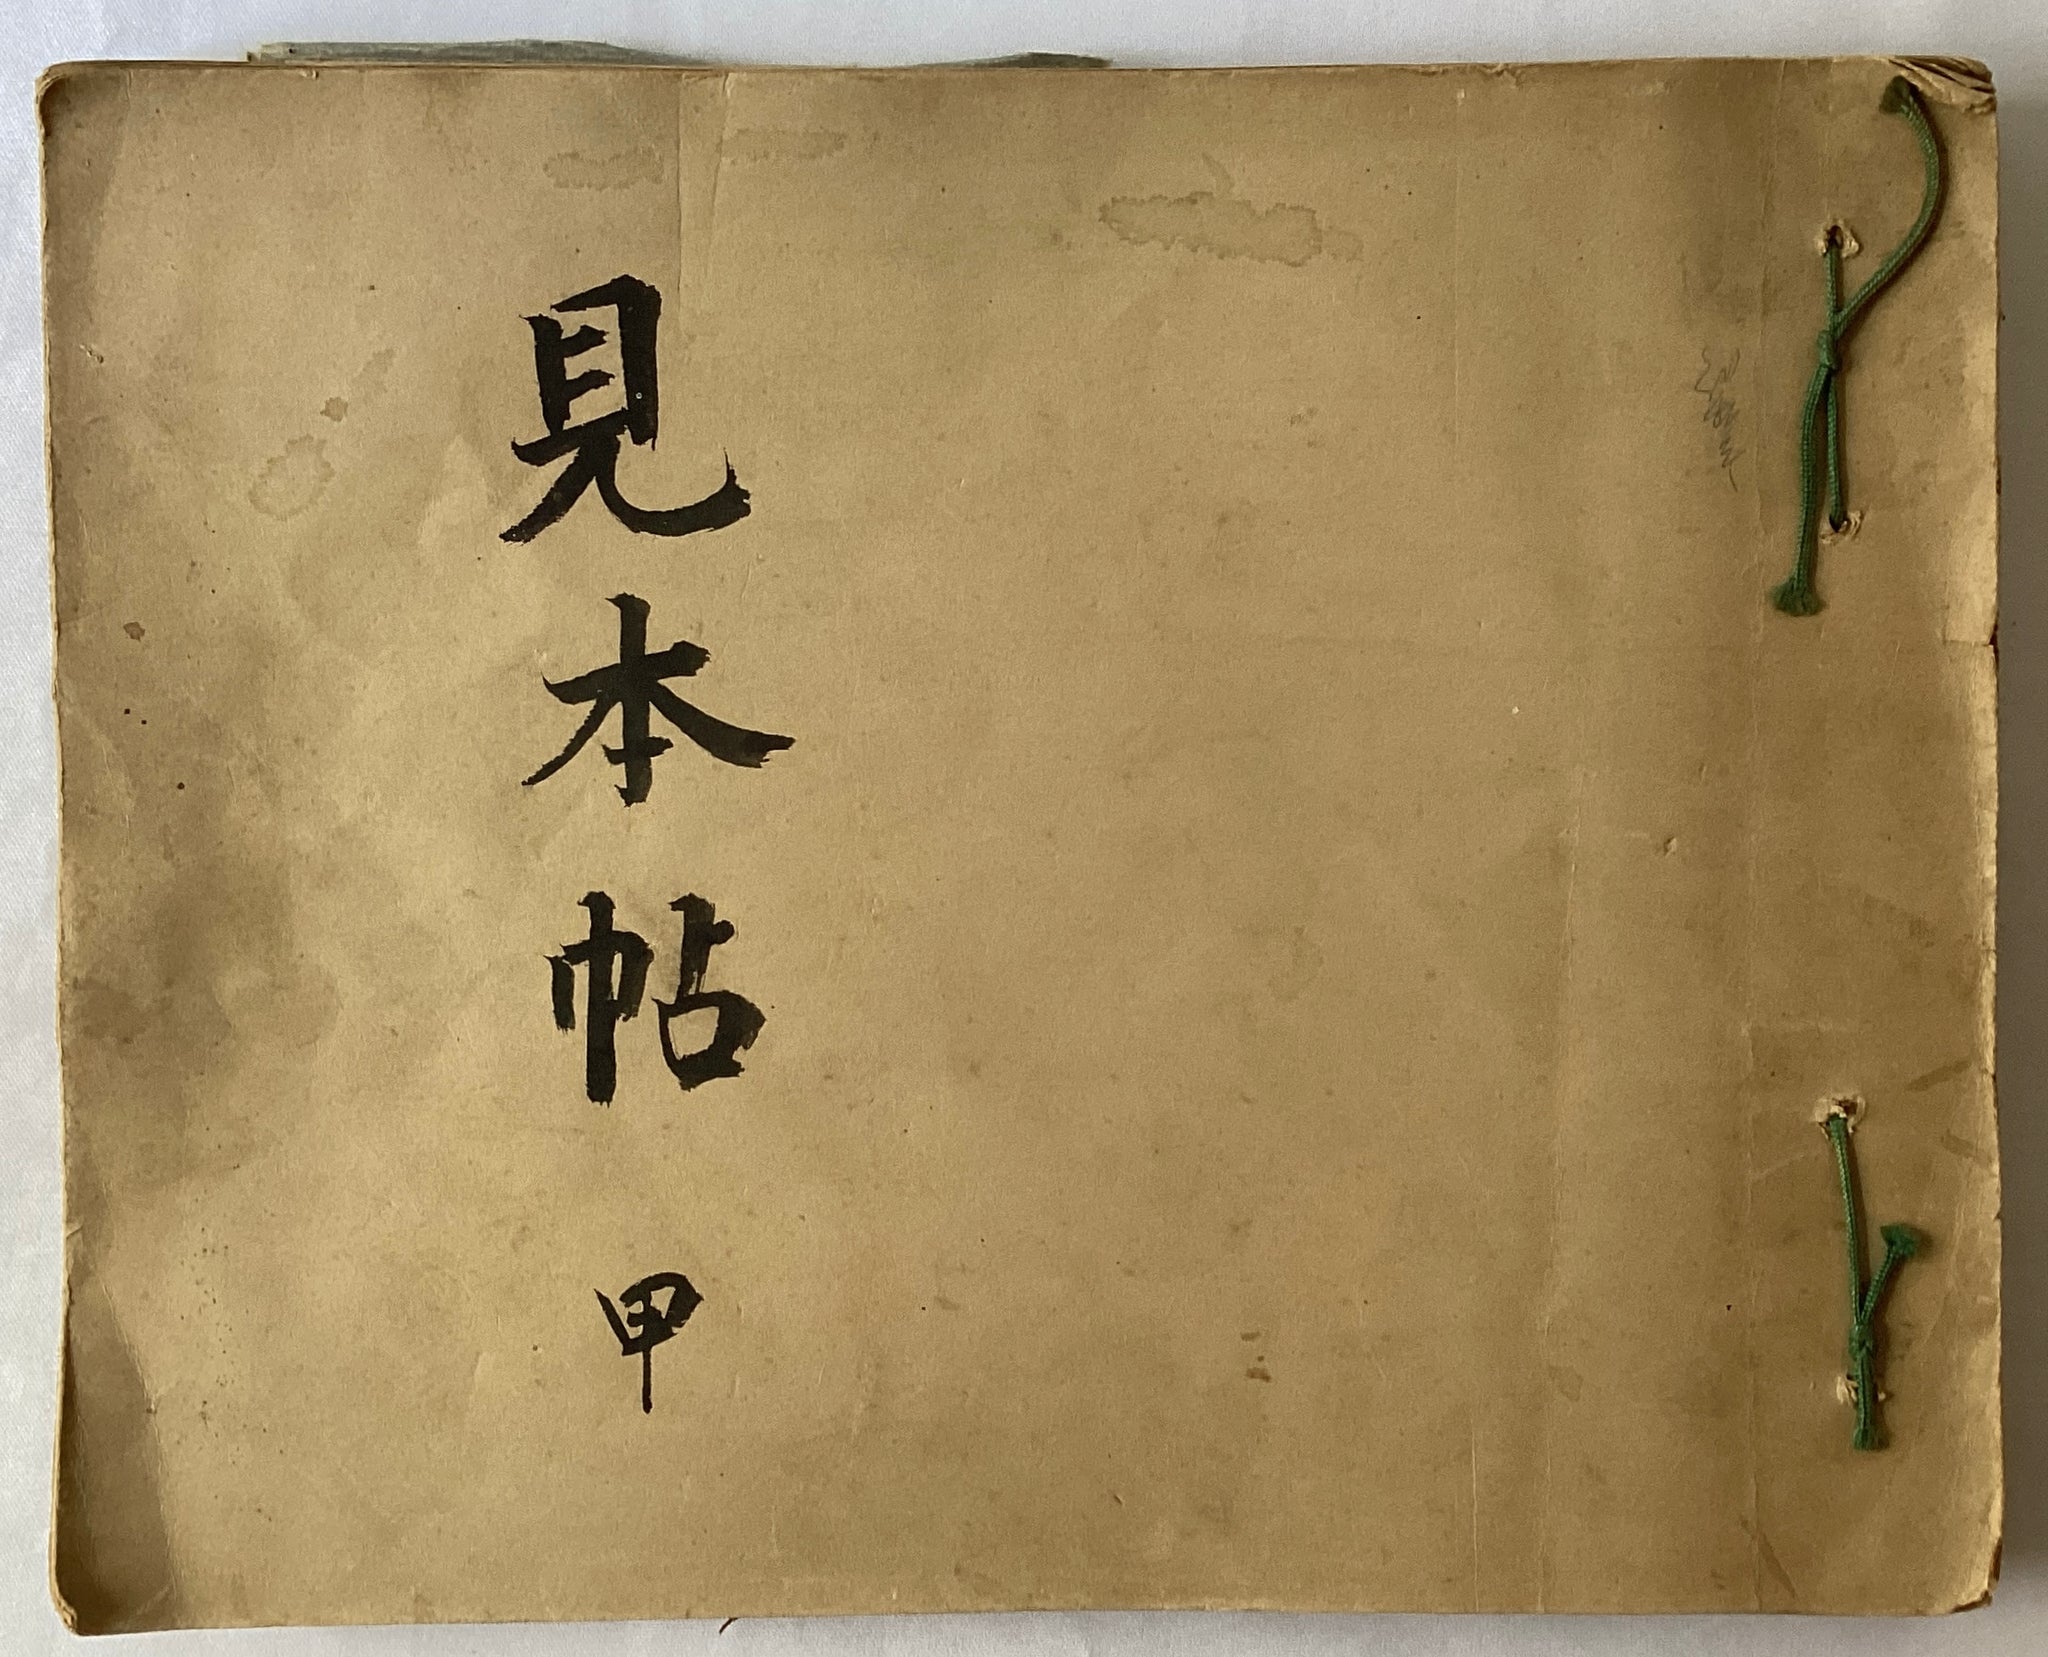 見本帖 甲